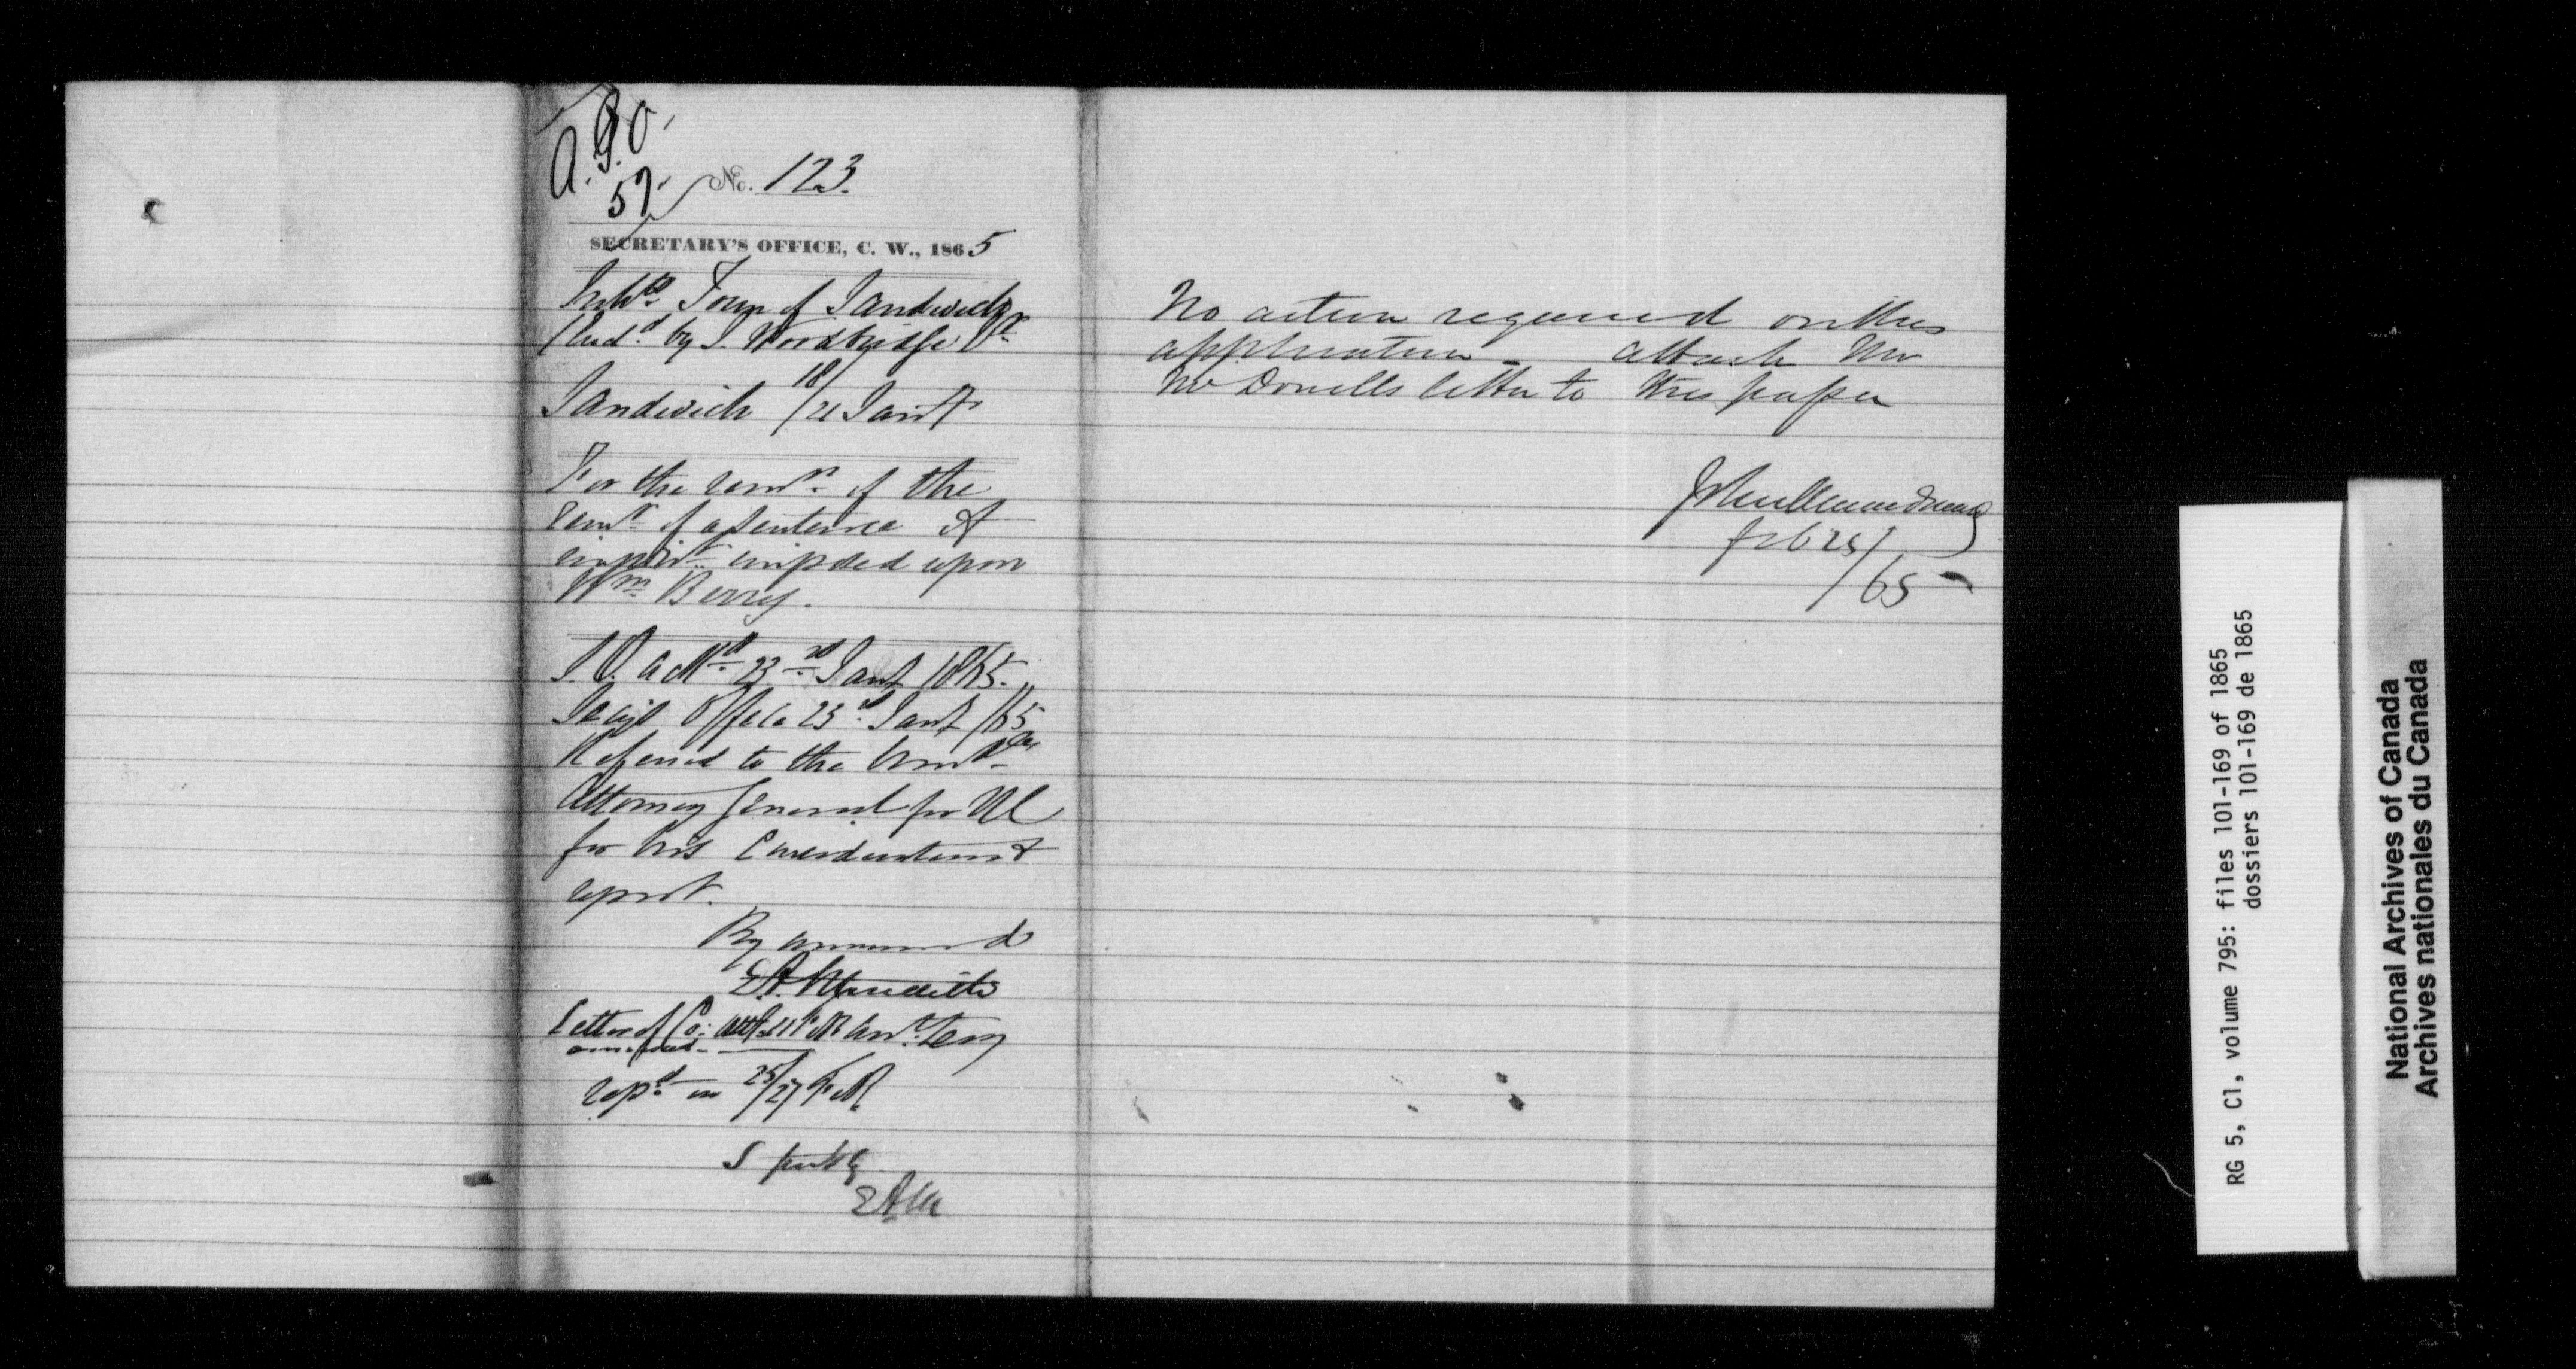 A.G.O.
57.
No. 123.
SECRETARY'S OFFICE, C. W., 1865
Inhts. Town of Sandwich
by S. Woodbridge
Sandwich 18/21 Jany
For the remn. of the
remr. of a sentence of
imprist. imposed upon
Wm. Berry.
S.O. ackd. 23rd Jany 1865.
Secys Office 23d. Jany /65
Referred to the Honble
Attorney General for UC
for his Consideration &
report.
By command
E.A. Meredith
Letter of Co: Atty
annexed
repd. in 25/27 Feb.
EAM
No action required on this
application - attach Mr
McDonells letter to this paper
Feb 25/65
RG 5, C1, volume 795: files 101-169 of 1865
dossiers 101-169 de 1865
National Archives of Canada
Archives nationales du Canada